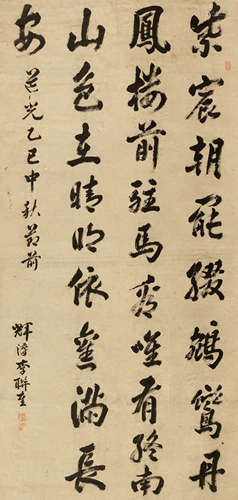 紫宸朝罷綴鵷鸞丹
鳳樓前駐馬看唯有終南
山色在晴明依舊滿長
安
道光乙巳中秋節前
輝潯李聯奎